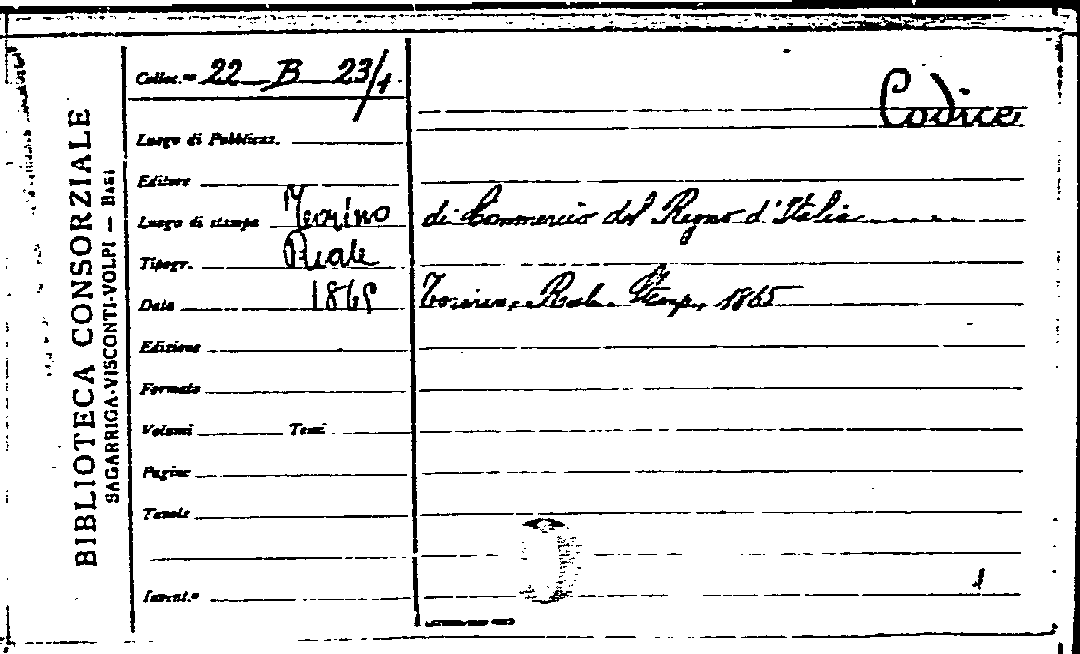 BIBLIOTECA CONSORZIALE
SAGARRIGA-VISCONTI-VOLPI — BARI
Colloc.ne 22 B 23/1
Luogo di Pubblicaz.
Editore
Luogo di stampa Torino
Tipogr. Reale
Data 1865
Edizione
Formato
Volumi Tomi
Pagine
Tavole
Invent.o
Codice
di Commercio del Regno d'Italia
Torino, Reale Stamp., 1865
1